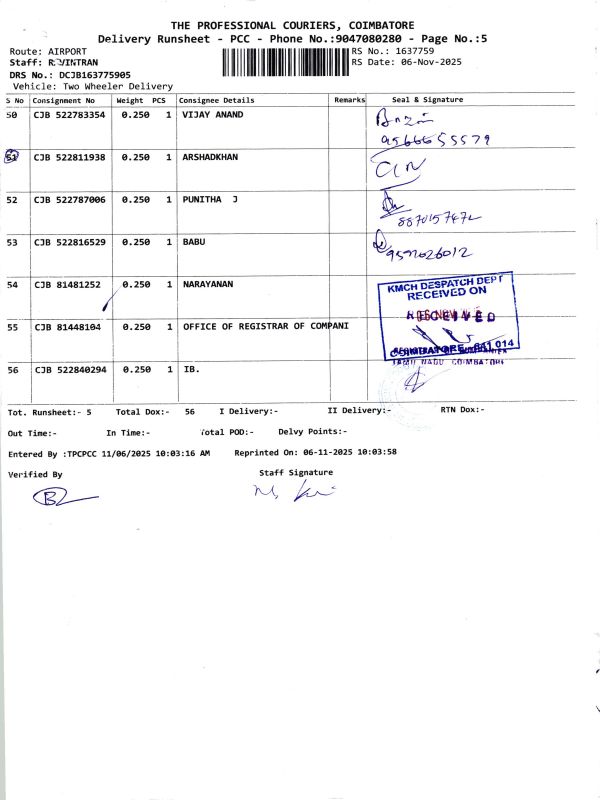 THE PROFESSIONAL COURIERS, COIMBATORE
Delivery Runsheet - PCC - Phone No.:9047080280 - Page No.:5
Route: AIRPORT
RS No.: 1637759
Staff: RAVINTRAN
RS Date: 06-Nov-2025
DRS No.: DCJB163775905
Vehicle: Two Wheeler Delivery
S No Consignment No Weight PCS Consignee Details Remarks Seal & Signature
50 CJB 522783354 0.250 1 VIJAY ANAND
9566655579
51 CJB 522811938 0.250 1 ARSHADKHAN
52 CJB 522787006 0.250 1 PUNITHA J
8870157472
53 CJB 522816529 0.250 1 BABU
9597026012
54 CJB 81481252 0.250 1 NARAYANAN
KMCH DESPATCH DEPT
RECEIVED ON
55 CJB 81448104 0.250 1 OFFICE OF REGISTRAR OF COMPANI
COIMBATORE - 641 014
TAMIL NADU, COIMBATORE
56 CJB 522840294 0.250 1 IB.
Tot. Runsheet:- 5 Total Dox:- 56 I Delivery:- II Delivery:- RTN Dox:-
Out Time:- In Time:- Total POD:- Delvy Points:-
Entered By :TPCPCC 11/06/2025 10:03:16 AM Reprinted On: 06-11-2025 10:03:58
Verified By
Staff Signature